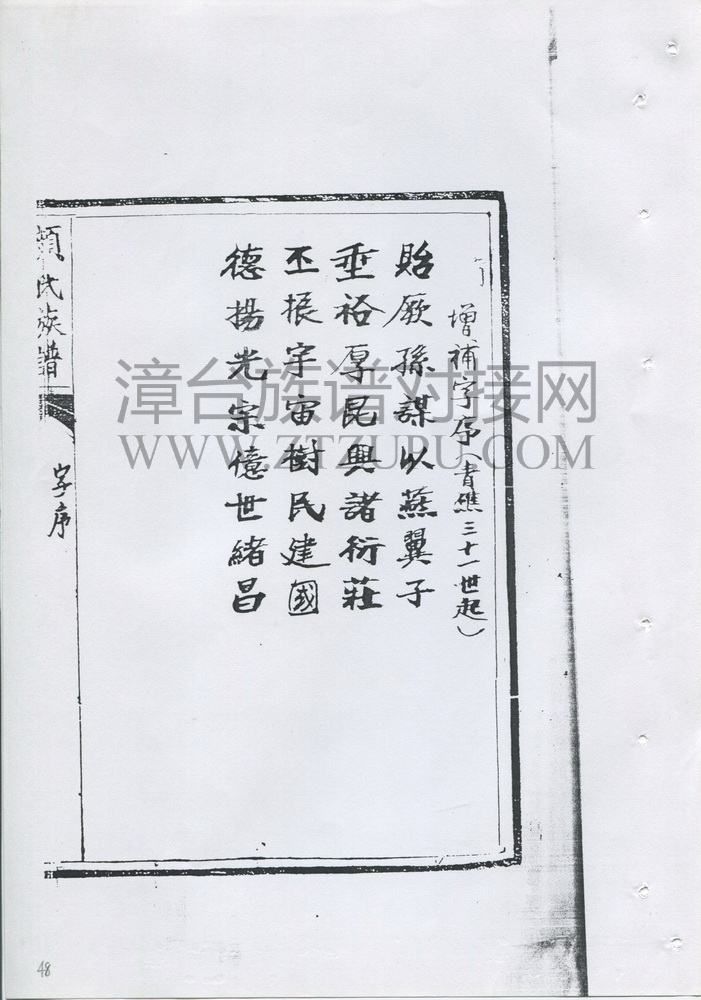 增補字序（青礁三十一世起）
貽厥孫謀以燕翼子
垂裕厚昆興諸衍莊
丕振宇宙樹民建國
德揚光宗億世緒昌
顏氏族譜
字序
漳台族谱对接网
WWW.ZTZUPU.COM
48